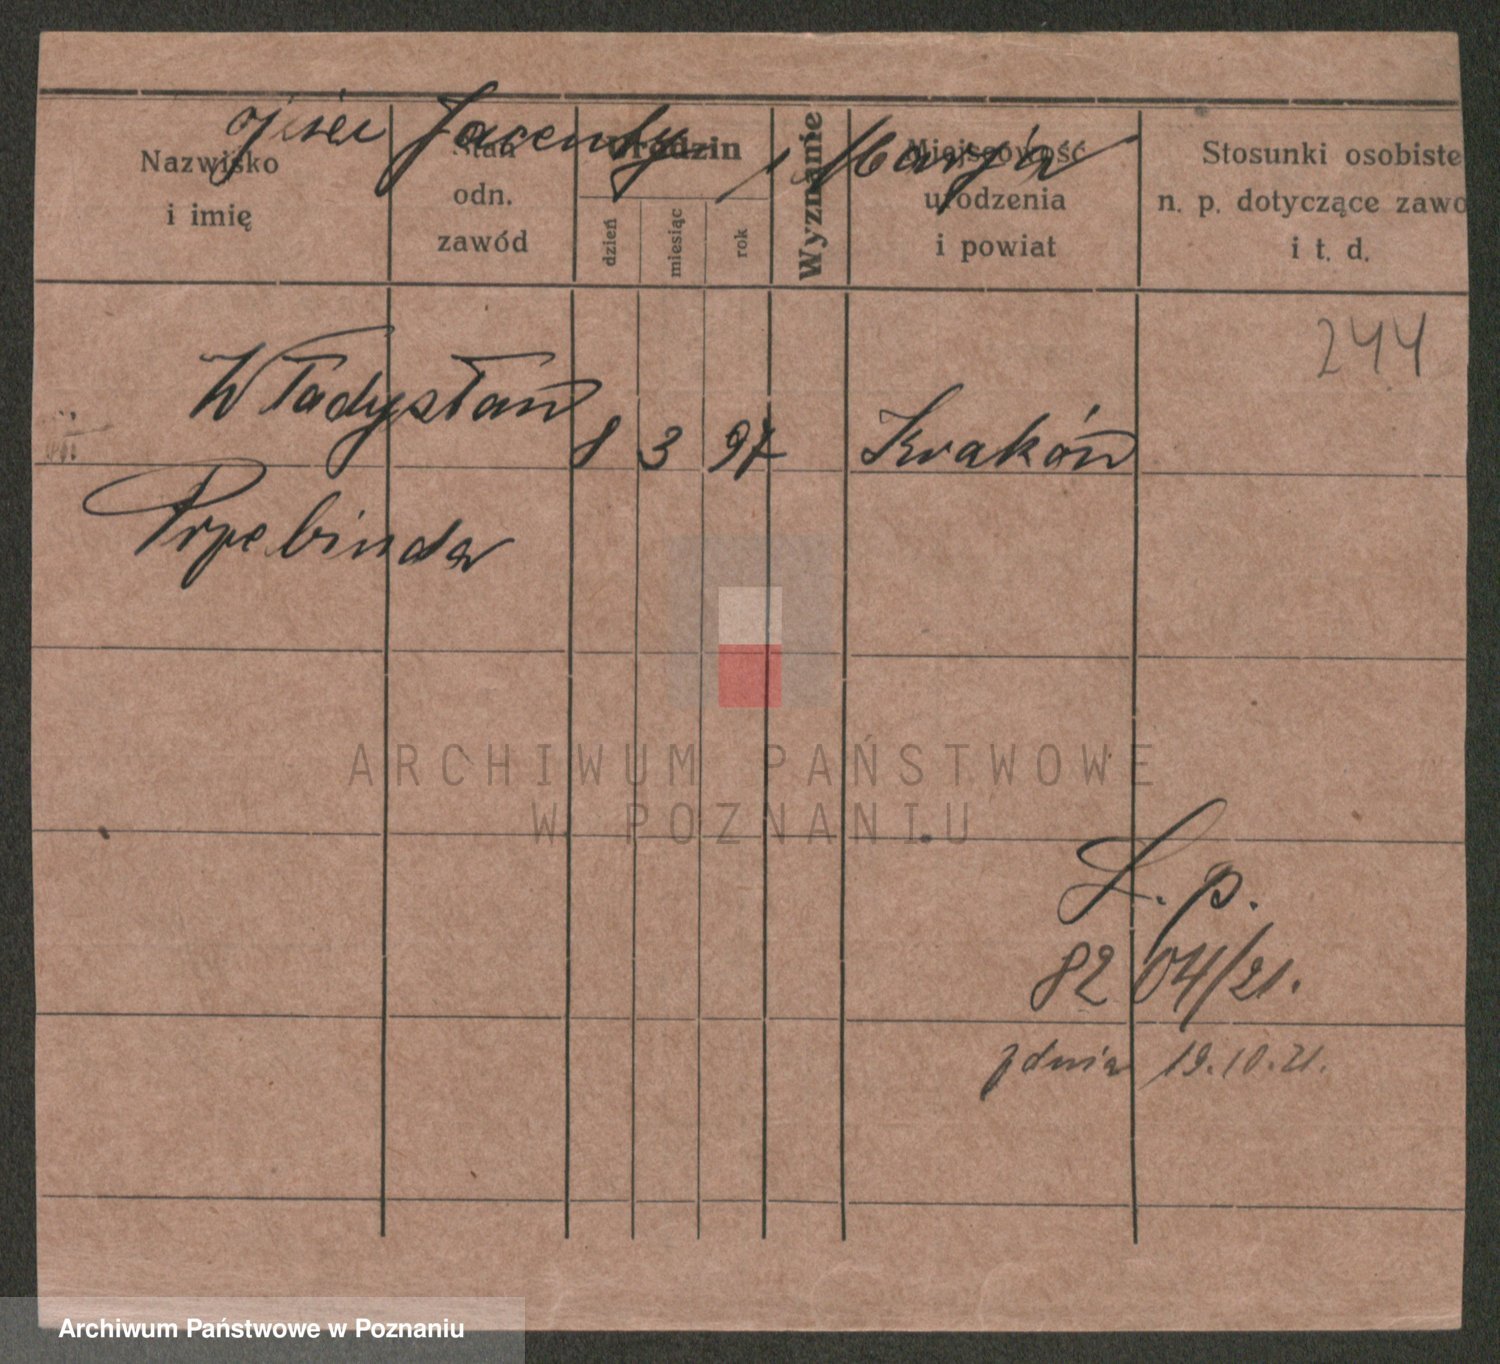 ojciec Jacenty i Marja
Nazwisko i imię
Stan odn. zawód
Urodzin
dzień
miesiąc
rok
Wyznanie
Miejscowość urodzenia i powiat
Stosunki osobiste n. p. dotyczące zawo i t. d.
244
Władysław
8 3 97 Kraków
Przebinda
ARCHIWUM PAŃSTWOWE
W POZNANIU
L. p.
8204/21.
z dnia 19.10.21.
Archiwum Państwowe w Poznaniu